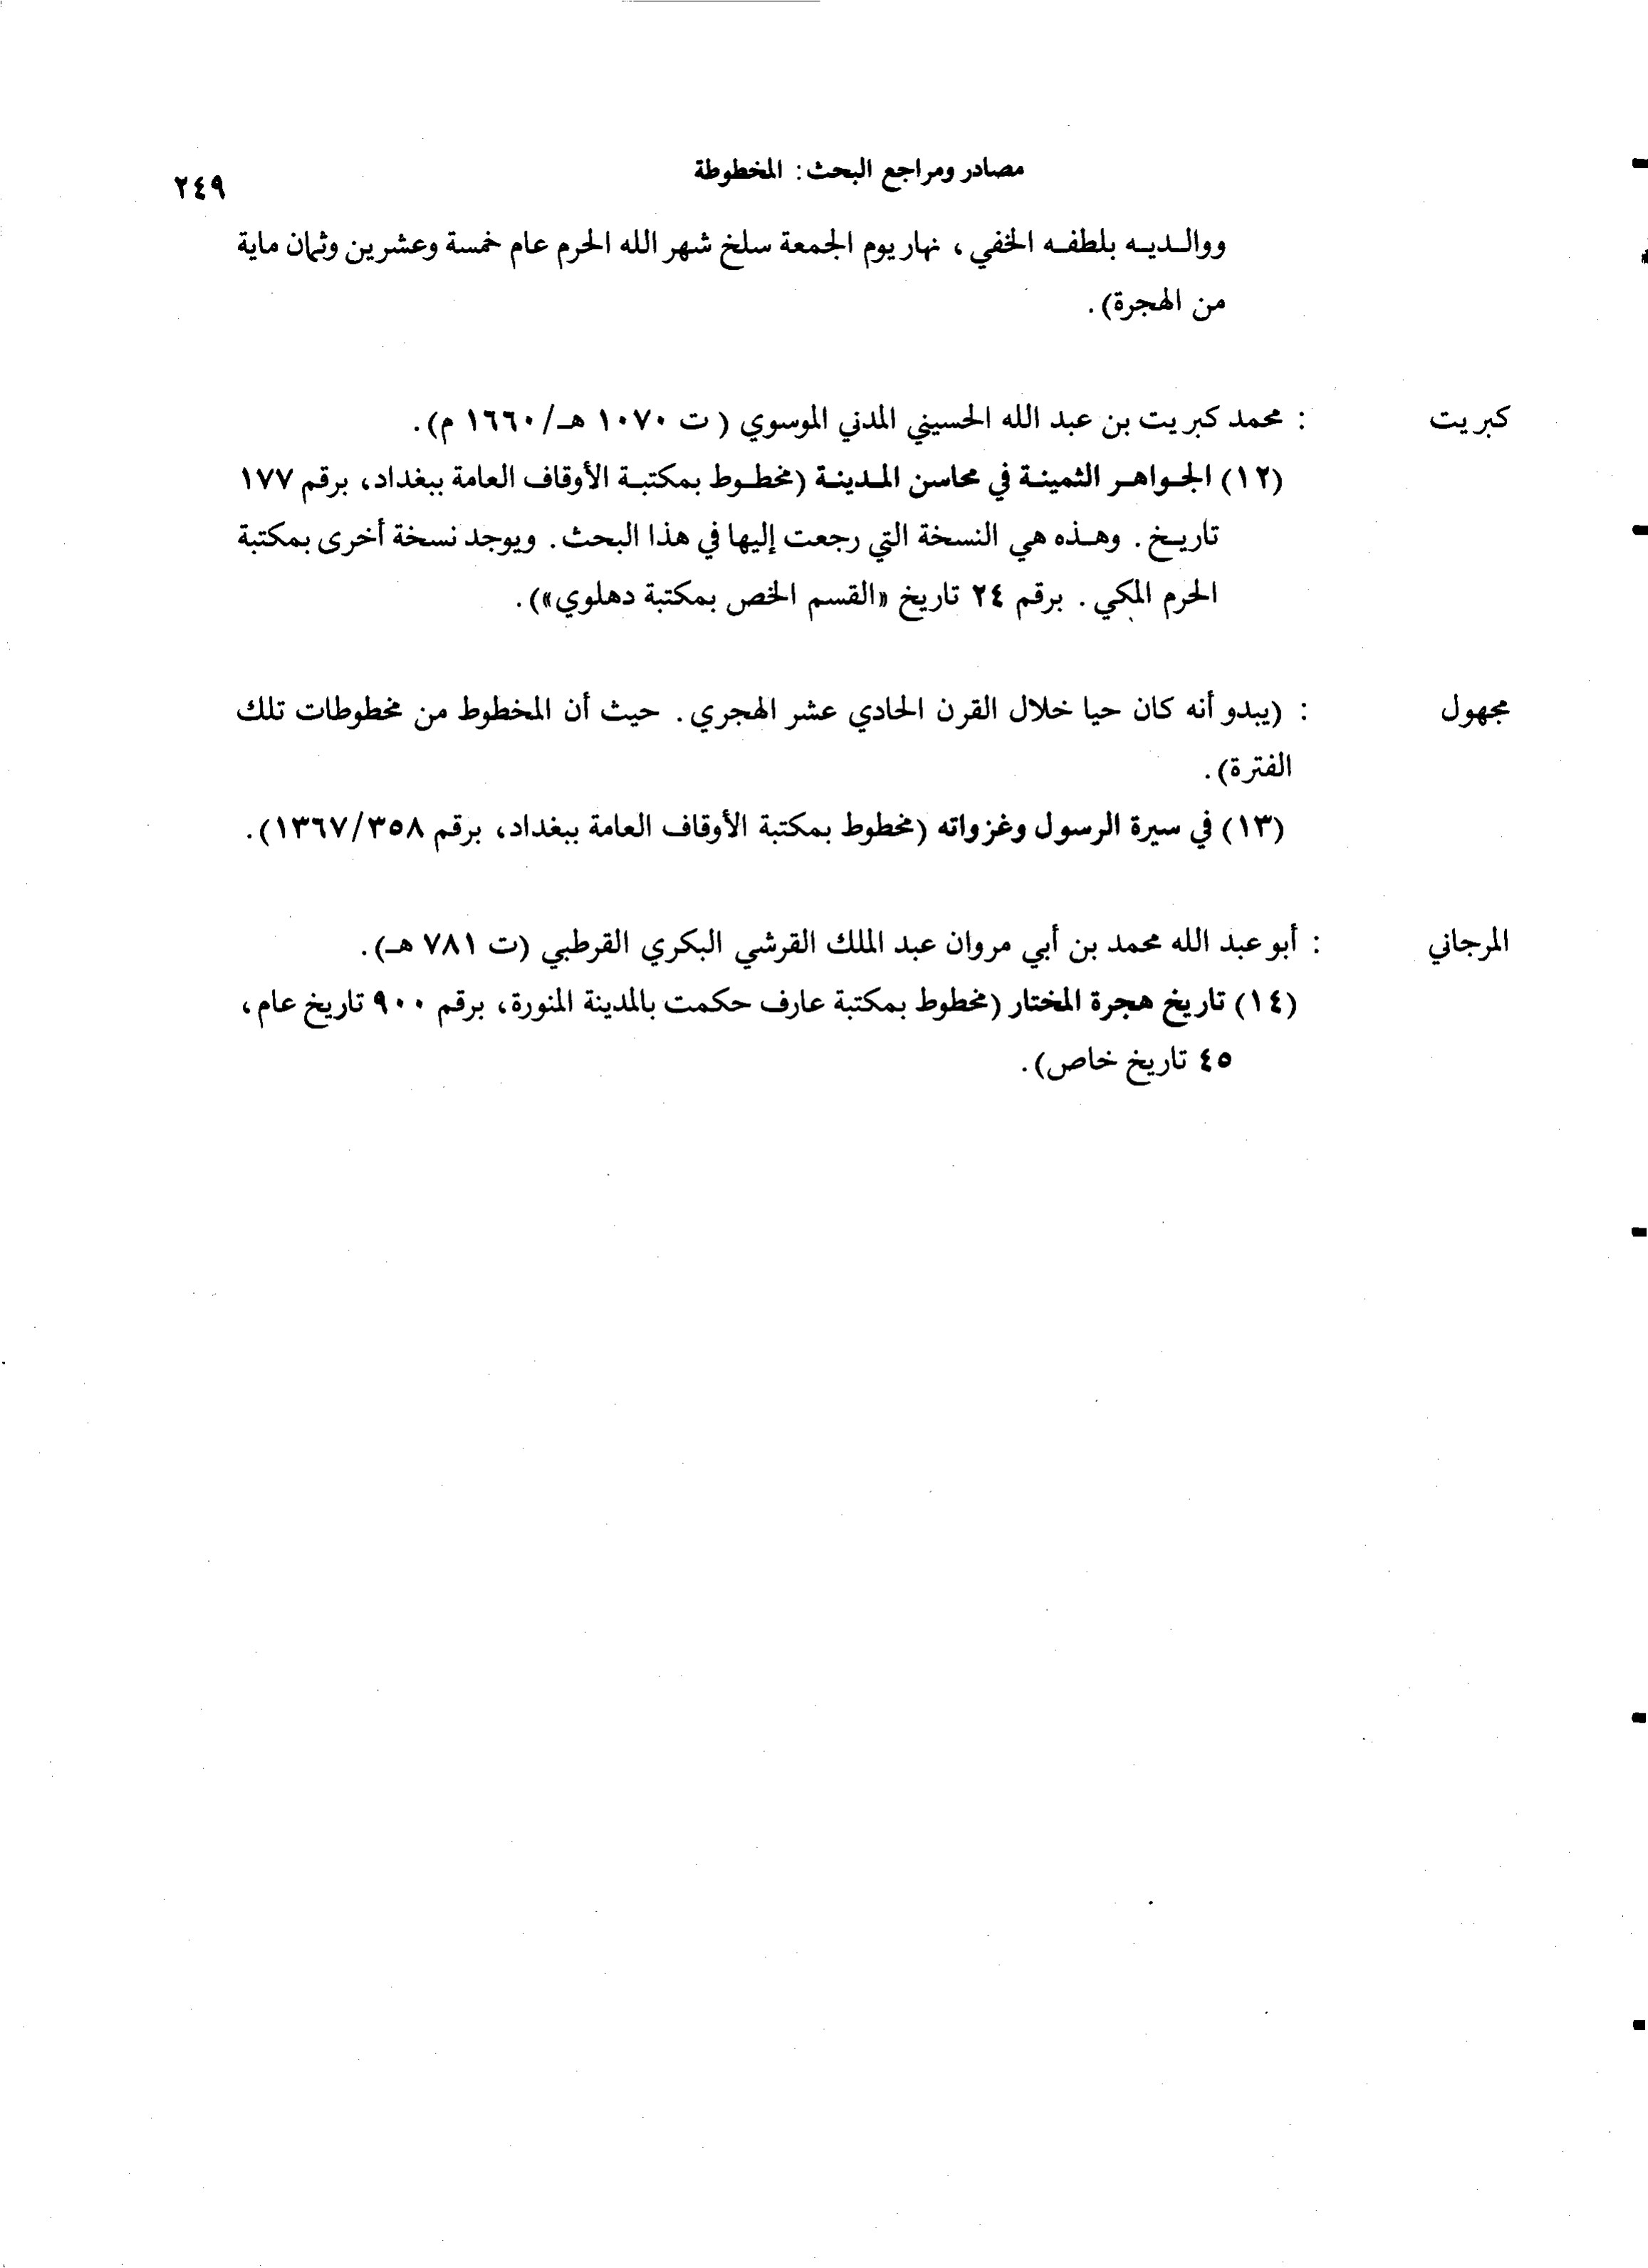 مصادر ومراجع البحث: المخطوطة
٢٤٩
ووالـديـه بلطفـه الخفي، نهار يوم الجمعة سلخ شهر الله الحرم عام خمسة وعشرين وثمان ماية
من الهجرة).
كبريت : محمد كبريت بن عبد الله الحسيني المدني الموسوي ( ت ١٠٧٠ هـ/١٦٦٠ م).
(١٢) الجـواهـر الثمينـة في محاسن المـدينـة (مخطـوط بمكتبـة الأوقاف العامة ببغداد، برقم ١٧٧
تاريـخ. وهـذه هي النسخة التي رجعت إليها في هذا البحث. ويوجد نسخة أخرى بمكتبة
الحرم المكي. برقم ٢٤ تاريخ «القسم الخص بمكتبة دهلوي»).
مجهول : (يبدو أنه كان حيا خلال القرن الحادي عشر الهجري. حيث أن المخطوط من مخطوطات تلك
الفترة).
(١٣) في سيرة الرسول وغزواته (مخطوط بمكتبة الأوقاف العامة ببغداد، برقم ١٣٦٧/٣٥٨).
المرجاني : أبو عبد الله محمد بن أبي مروان عبد الملك القرشي البكري القرطبي (ت ٧٨١ هـ).
(١٤) تاريخ هجرة المختار (مخطوط بمكتبة عارف حكمت بالمدينة المنورة، برقم ٩٠٠ تاريخ عام،
٤٥ تاريخ خاص).